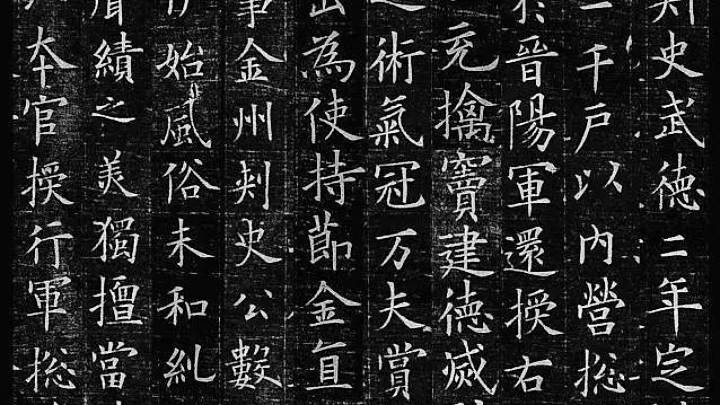 史武德二年定
一千戸以內營総
晉陽軍還授右
充擒竇建德滅
之術氣冠万夫賞
為使持節金直
事金州刾史公數
始風俗未和糺
績之美獨擅當
夲官授行軍総